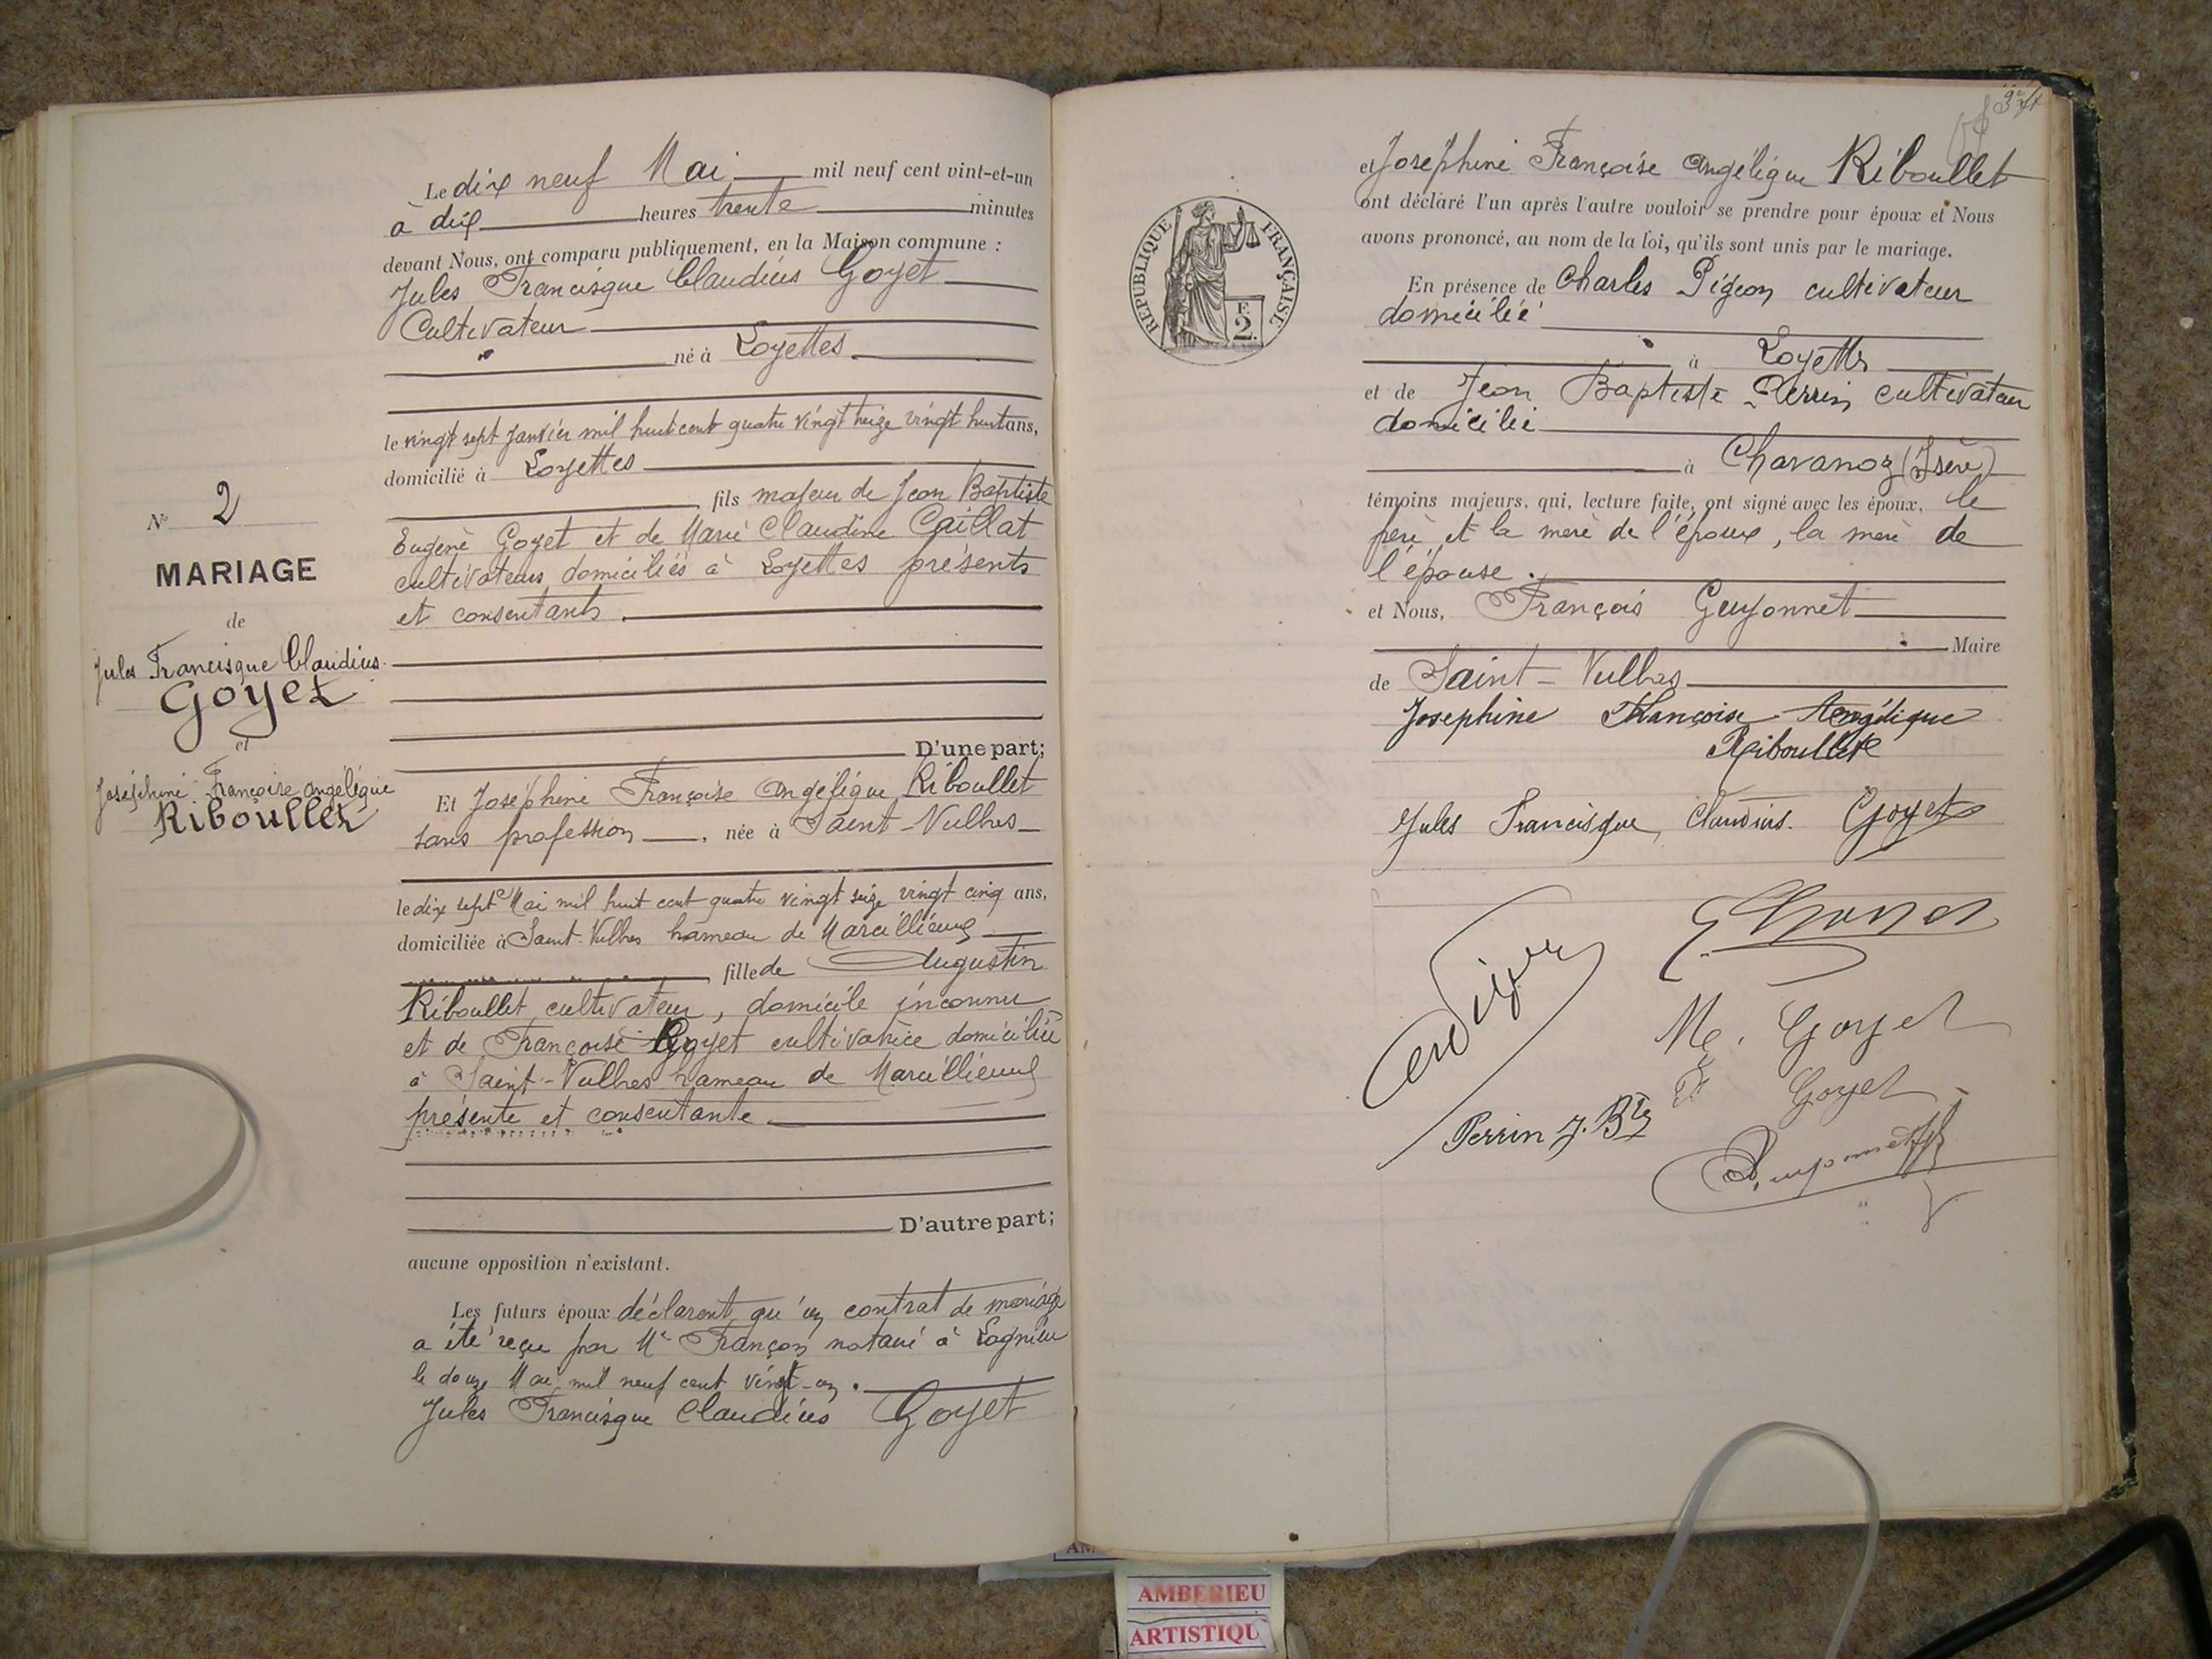 Le dix neuf Mai mil neuf cent vint-et-un
à dix heures trente minutes
devant Nous, ont comparu publiquement, en la Maison commune :
Jules Francisque Claudius Goyet
Cultivateur
né à Loyettes
le vingt sept Janvier mil huit cent quatre vingt treize vingt huit ans,
domicilié à Loyettes
fils majeur de Jean Baptiste
Eugène Goyet et de Marie Claudine Caillat
cultivateurs domiciliés à Loyettes présents
et consentants.
D'une part;
Et Joséphine Françoise Angélique Riboullet
sans profession, née à Saint-Vulbas
le dix sept Mai mil huit cent quatre vingt seize vingt cinq ans,
domiciliée à Saint-Vulbas hameau de Marcillieux
fille de Augustin
Riboullet cultivateur, domicile inconnu
et de Françoise Goyet cultivatrice domiciliée
à Saint-Vulbas hameau de Marcillieux
présente et consentante
D'autre part;
aucune opposition n'existant.
Les futurs époux déclarent qu'un contrat de mariage
a été reçu par Me Françon notaire à Lagnieu
le douze Mai mil neuf cent vingt-un.
Jules Francisque Claudius Goyet
No 2
MARIAGE
de
Jules Francisque Claudius
Goyet
et
Joséphine Françoise angélique
Riboullet
et Joséphine Françoise Angélique Riboullet
ont déclaré l'un après l'autre vouloir se prendre pour époux et Nous
avons prononcé, au nom de la loi, qu'ils sont unis par le mariage.
RÉPUBLIQUE FRANÇAISE
F.
2.
En présence de Charles Pigeon cultivateur
domicilié
à Loyettes
et de Jean Baptiste Perrin cultivateur
domicilié
à Chavanoz (Isère)
témoins majeurs, qui, lecture faite, ont signé avec les époux, le
père et la mère de l'époux, la mère de
l'épouse.
et Nous, François Guyonnet
Maire
de Saint-Vulbas
Josephine Françoise Angélique
Riboullet
Jules Francisque Claudius. Goyet
Me. Goyet
Goyet
Perrin J. Bte
AMBERIEU
ARTISTIQU